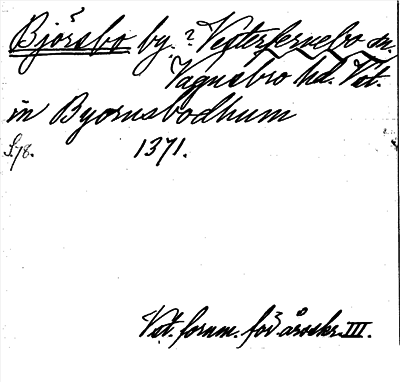 Björsbo by. ? Vesterfernebo sn.
Vagnsbro hd. Vst.
in Byornsbodhum
S. 78. 1371.
Vst. fornm.för. årsskr. III.